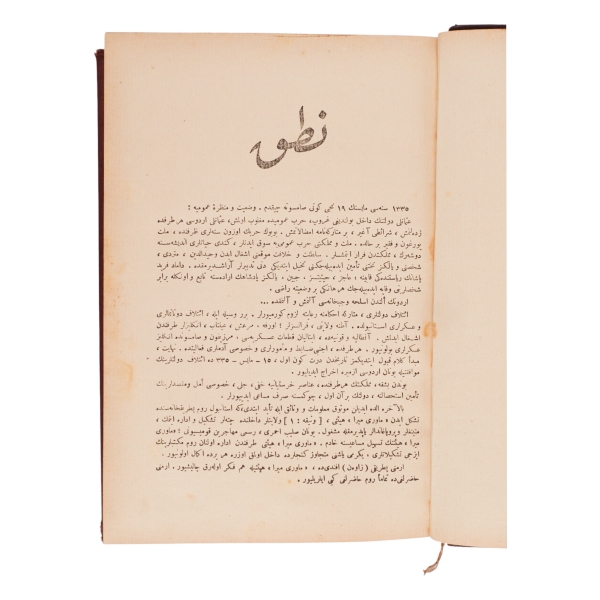 نطق
۱۳۳۵ سنه‌سی مایسنك ۱۹ نجی كونی صامسونه چیقدم . وضعیت و منظرهٔ عمومیه :
عثمانلی دولتنك داخل بولندیغی غروپ ، حرب عمومیده مغلوب اولمش ، عثمانلی اردوسی هر طرفده
زده‌لنمش ، شرائطی آغیر ، بر متاركه‌نامه امضالانمش . بویوك حربك اوزون سنه‌لری ظرفنده ، ملت
یورغون و فقیر بر حالده . ملت و مملكتی حرب عمومی‌یه سوق ایدنلر ، كندی حیاتلری اندیشه‌سنه
دوشه‌رك ، مملكتدن فرار ایتمشلر . سلطنت و خلافت موقعنی اشغال ایدن وحیدالدین ، متردی ،
شخصنی و یالكز تختنی تأمین ایده‌بیله‌جكنی تخیل ایتدیكی دنی تدبیرلر آراشدیرمقده . داماد فرید
پاشانك ریاستنده‌كی قابینه ؛ عاجز ، حیثیتسز ، جبین ، یالكز پادشاهك اراده‌سنه تابع و اونكله برابر
شخصلرینی وقایه ایده‌بیله‌جك هر هانكی بر وضعیته راضی .
اردونك الندن اسلحه و جبخانه‌سی آلنمش و آلنمقده ...
ائتلاف دولتلری ، متاركه احكامنه رعایته لزوم كورمیورلر . برر وسیله ایله ، ائتلاف دونانمالری
و عسكرلری استانبولده . آطنه ولایتی ، فرانسزلر ؛ اورفه ، مرعش ، عینتاب ، انكلیزلر طرفندن
اشغال ایدلمش . آنطالیه و قونیه‌ده ، ایتالیان قطعات عسكریه‌سی ، مرزیفون و صامسونده انكلیز
عسكرلری بولونیور . هر طرفده ، اجنبی ضابط و مأمورلری و خصوصی آدملری فعالیتده . نهایت ،
مبدأ كلام قبول ایتدیكمز تاریخدن درت كون اول ، ۱۵ ـ مایس ـ ۳۳۵ ده ائتلاف دولتلرینك
موافقتیله یونان اردوسی ازمیره اخراج ایدیلیور .
بوندن بشقه ، مملكتك هر طرفنده ، عناصر خرستیانیه خفی ، جلی ، خصوصی امل و مقصدلرینك
تأمین استحصالنه ، دولتك بر آن اول ، چوكمسنه صرف مساعی ایدییورلر .
بالآخره الده ایدیلن موثوق معلومات و وثائق ایله تأید ایتدی‌كه استانبول روم پطریقخانه‌سنده
تشكل ایدن « ماوری میرا » هیئتی ، [ وثیقه : ۱ ] ولایتلر داخلنده چته‌لر تشكیل و اداره ایتمك ،
میتینغلر و پروپاغاندالر یاپدیرمقله مشغول . یونان صلیب احمری ، رسمی مهاجرین قومیسیونی ؛ « ماوری
میرا » هیئتنك تسهیل مساعیسنه خادم . « ماوری میرا » هیئتی طرفندن اداره اولنان روم مكتبلرینك
ایزجی تشكیلاتلری ، یكرمی یاشنی متجاوز كنجلرده داخل اولمق اوزره هر یرده اكمال اولونیور .
ارمنی پطریقی ( زاوه‌ن ) افندی‌ده ، « ماوری میرا » هیئتیله هم فكر اوله‌رق چالیشیور . ارمنی
حاضرلغی‌ده تماماً روم حاضرلغی كبی ایلریلیور .